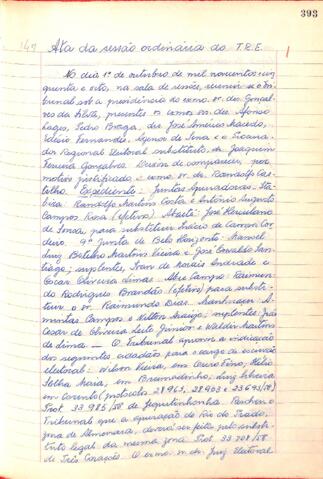 393
147
Ata da sessão ordinária do T.R.E.
No dia 1º de outubro de mil novecentos e cin
quenta e oito, na sala de sessões, reuniu-se o Tri
bunal sob a presidência do exmo. sr. des. Gonçal
ves da Silva, presentes os exmos srs. des. Afonso
Lages, Pedro Braga, drs José Américo Macedo,
Fernandes, Agenor de Sena e o Procura
dor Regional Eleitoral substituto, dr. Joaquim
Ferreira Gonçalves. Deixou de comparecer, por
motivo justificado o exmo. sr. des.
Expediente: Juntas Apuradoras:
Martins Costa e Antônio Augusto
Campos Rosa (efetivos). Abaeté: José
de Sousa, para substituir Inácio de Campos Cor
deiro. 9ª Junta de Belo Horizonte: Manoel
Luiz Martins Vieira e José Oswaldo San
tiago; suplentes, Ivan de Morais Andrade e
Oscar Oliveira Lima. Abre Campo: Raimun
do Rodrigues Brandão (efetivo) para substi
tuir o sr. Raimundo Dias
Campos e Nilton Araújo; suplentes José
Cesar de Oliveira Leite Júnior e Waldir Martins
de Lima — O Tribunal aprova a indicação
dos seguintes cidadãos para o cargo de escrivão
eleitoral: Wilson Vieira, em Ouro Fino; Hélio
Maia, em Brumadinho; Luiz
em Corinto (protocolos 28963, 28903 e 23693/58)
Prot 33.985/58 de Jequitinhonha. Resolveu o
Tribunal que a apuração de Rio do Prado,
zona de Almenara, deverá ser feita pelo substi
tuto legal da mesma zona Prot 33.708/58
de Três Corações. O exmo. m. dr. Juiz Eleitoral